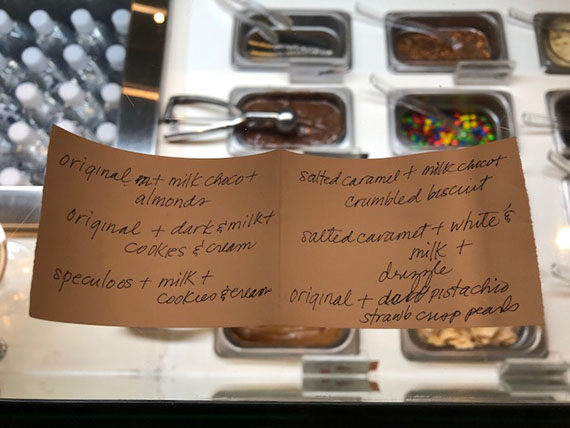 original + milk choco +
almonds
original + dark & milk +
cookies & cream
speculoos + milk +
cookies & cream
salted caramel + milk choco +
crumbled biscuit
salted caramel + white &
milk +
drizzle
original + dark pistachio
strawb crisp pearls